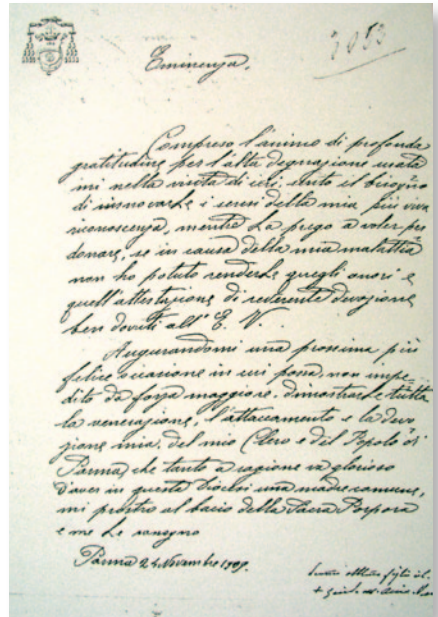 2053
Eminenza,
Compreso l'animo di profonda
gratitudine per l'alta degnazione usata
mi nella visita di ieri, sento il bisogno
di rinnovarLe i sensi della mia più viva
riconoscenza, mentre La prego a voler per
donare, se in causa della mia malattia
non ho potuto renderLe quegli onori e
quell'attestazione di reverente devozione
ben dovuti all'E. V.
Augurandomi una prossima più
felice occasione in cui possa, non impe=
dito da forza maggiore, dimostrarLe tutta
la venerazione, l'attaccamento e la devo
zione mia, del mio Clero e del Popolo di
Parma, che tanto a ragione va glorioso
d'aver in questa Diocesi una madre comune,
mi prostro al bacio della Sacra Porpora
e me Le rassegno
Parma 24 Novembre 1909.